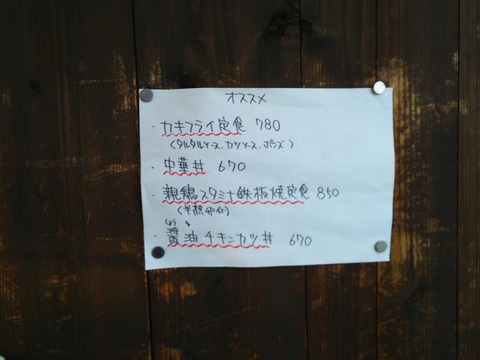 オススメ
・カキフライ定食 780
(タルタルソース、カツソース、ポン酢)
・中華丼 670
・親鶏スタミナ鉄板焼定食 850
(半熟卵付)
しょうゆ
・醤油チキンカツ丼 670